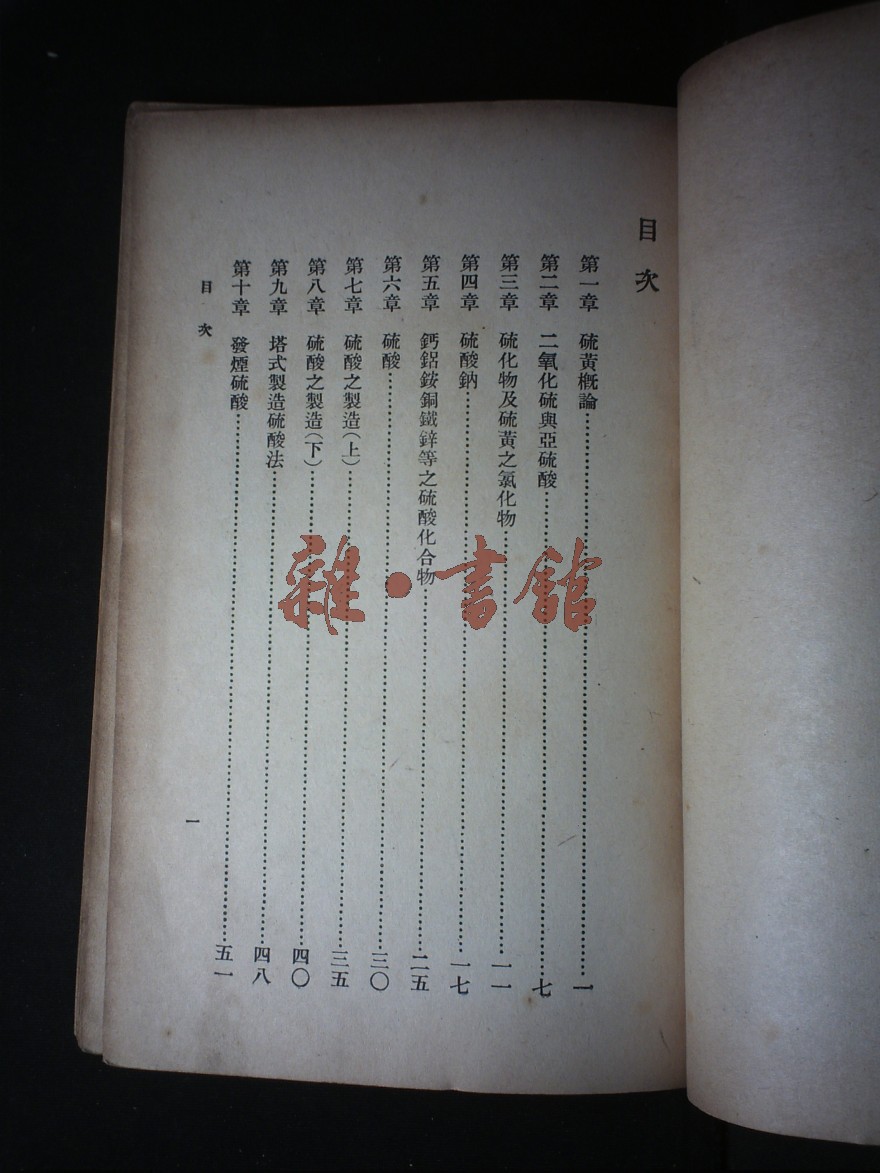 目次
第一章 硫黃概論……一
第二章 二氧化硫與亞硫酸……七
第三章 硫化物及硫黃之氯化物……一一
第四章 硫酸鈉……一七
第五章 鈣鋁銨銅鐵鋅等之硫酸化合物……二五
第六章 硫酸……三〇
第七章 硫酸之製造(上)……三五
第八章 硫酸之製造(下)……四〇
第九章 塔式製造硫酸法……四八
第十章 發煙硫酸……五一
目次 一
雜·書館